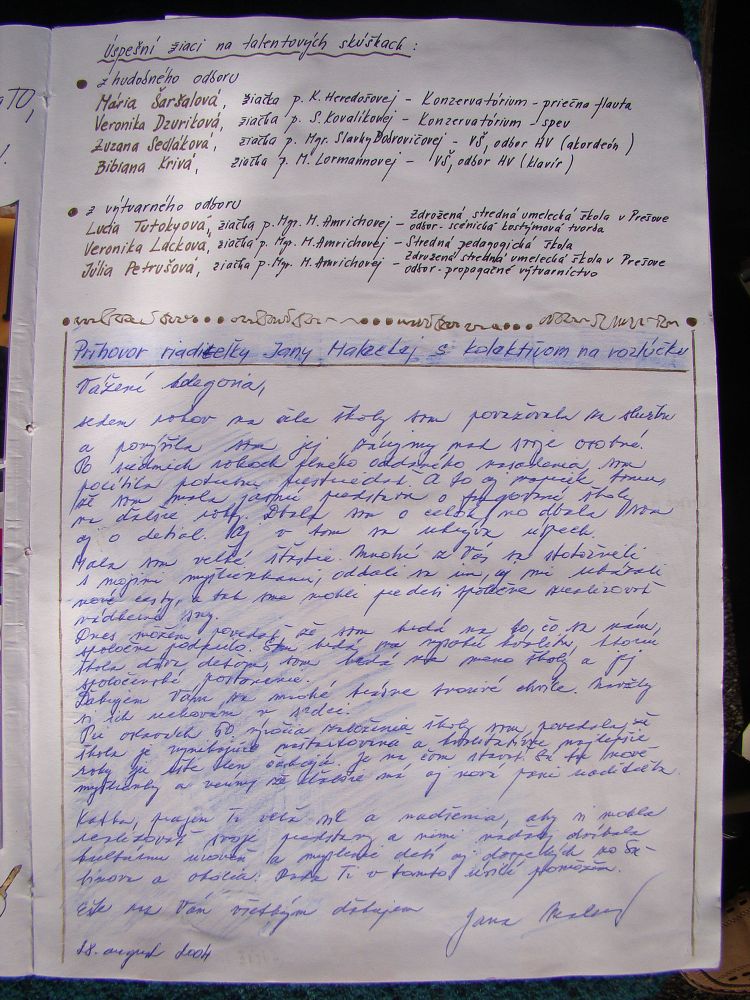 Úspešní žiaci na talentových skúškach :
z hudobného odboru
Mária Šaršalová, žiačka p. K. Heredošovej - Konzervatórium - priečna flauta
Veronika Dzuriková, žiačka p. S. Kovalíkovej - Konzervatórium - spev
Zuzana Sedláková, žiačka p. Mgr. Slavky Dobrovičovej - VŠ, odbor HV (akordeón)
Bibiana Krivá, žiačka p. M. Lormannovej - VŠ, odbor HV (klavír)
z výtvarného odboru
Lucia Tutokyová, žiačka p. Mgr. M. Amrichovej - Združená stredná umelecká škola v Prešove
odbor - scénická kostýmová tvorba
Veronika Lacková, žiačka p. Mgr. M. Amrichovej - Stredná pedagogická škola
Júlia Petrušová, žiačka p. Mgr. M. Amrichovej - Združená stredná umelecká škola v Prešove
odbor - propagačné výtvarníctvo
Príhovor riaditeľky Jany s kolektívom na rozlúčku
Vážení kolegovia,
sedem rokov na čele školy som považovala za službu
a povýšila som jej záujmy nad svoje osobné.
Po siedmich rokoch plného oddaného nasadenia, som
pocítila potrebu prestriedať. A to aj napriek tomu,
že som mala jasnú predstavu o fungovaní školy
na ďalšie roky. Dbala som o celok, no dbala som
aj o detail. Aj v tom sa ukrýva úspech.
Mala som veľké šťastie. Mnohí z Vás sa stotožnili
s mojimi myšlienkami, oddali sa im, aj mi ukázali
nové cesty, a tak sme mohli spoločne realizovať
sny.
Dnes môžem povedať, že som hrdá na to, čo sa nám
spoločne podarilo. Som hrdá na vysokú kvalitu, ktorú
škola dáva deťom, som hrdá na meno školy a jej
spoločenské postavenie.
Ďakujem Vám za mnohé krásne tvorivé chvíle. Navždy
si ich uchovám v srdci.
Pri oslavách 50. výročia založenia školy som povedala, že
škola je výnimajúco naštartovaná a najlepšie
roky ju ešte len čakajú. Je na čom stavať. Sú tu nové
myšlienky a má aj nová pani riaditeľka.
Katka, prajem Ti veľa síl a nadšenia, aby si mohla
realizovať svoje predstavy a nimi
kultúrnu úroveň a myslenie detí aj dospelých zo Sa-
binova a okolia. Rada Ti v tomto úsilí pomôžem.
Ešte raz Vám všetkým ďakujem
Jana
28. august 2004